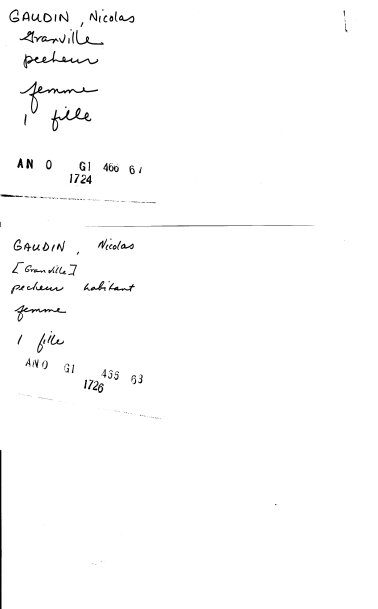 GAUDIN, Nicolas
Granville
pecheur
femme
1 fille
AN O G1 466 67
1724
GAUDIN, Nicolas
[Granville]
pecheur habitant
femme
1 fille
AN O G1 466 63
1726